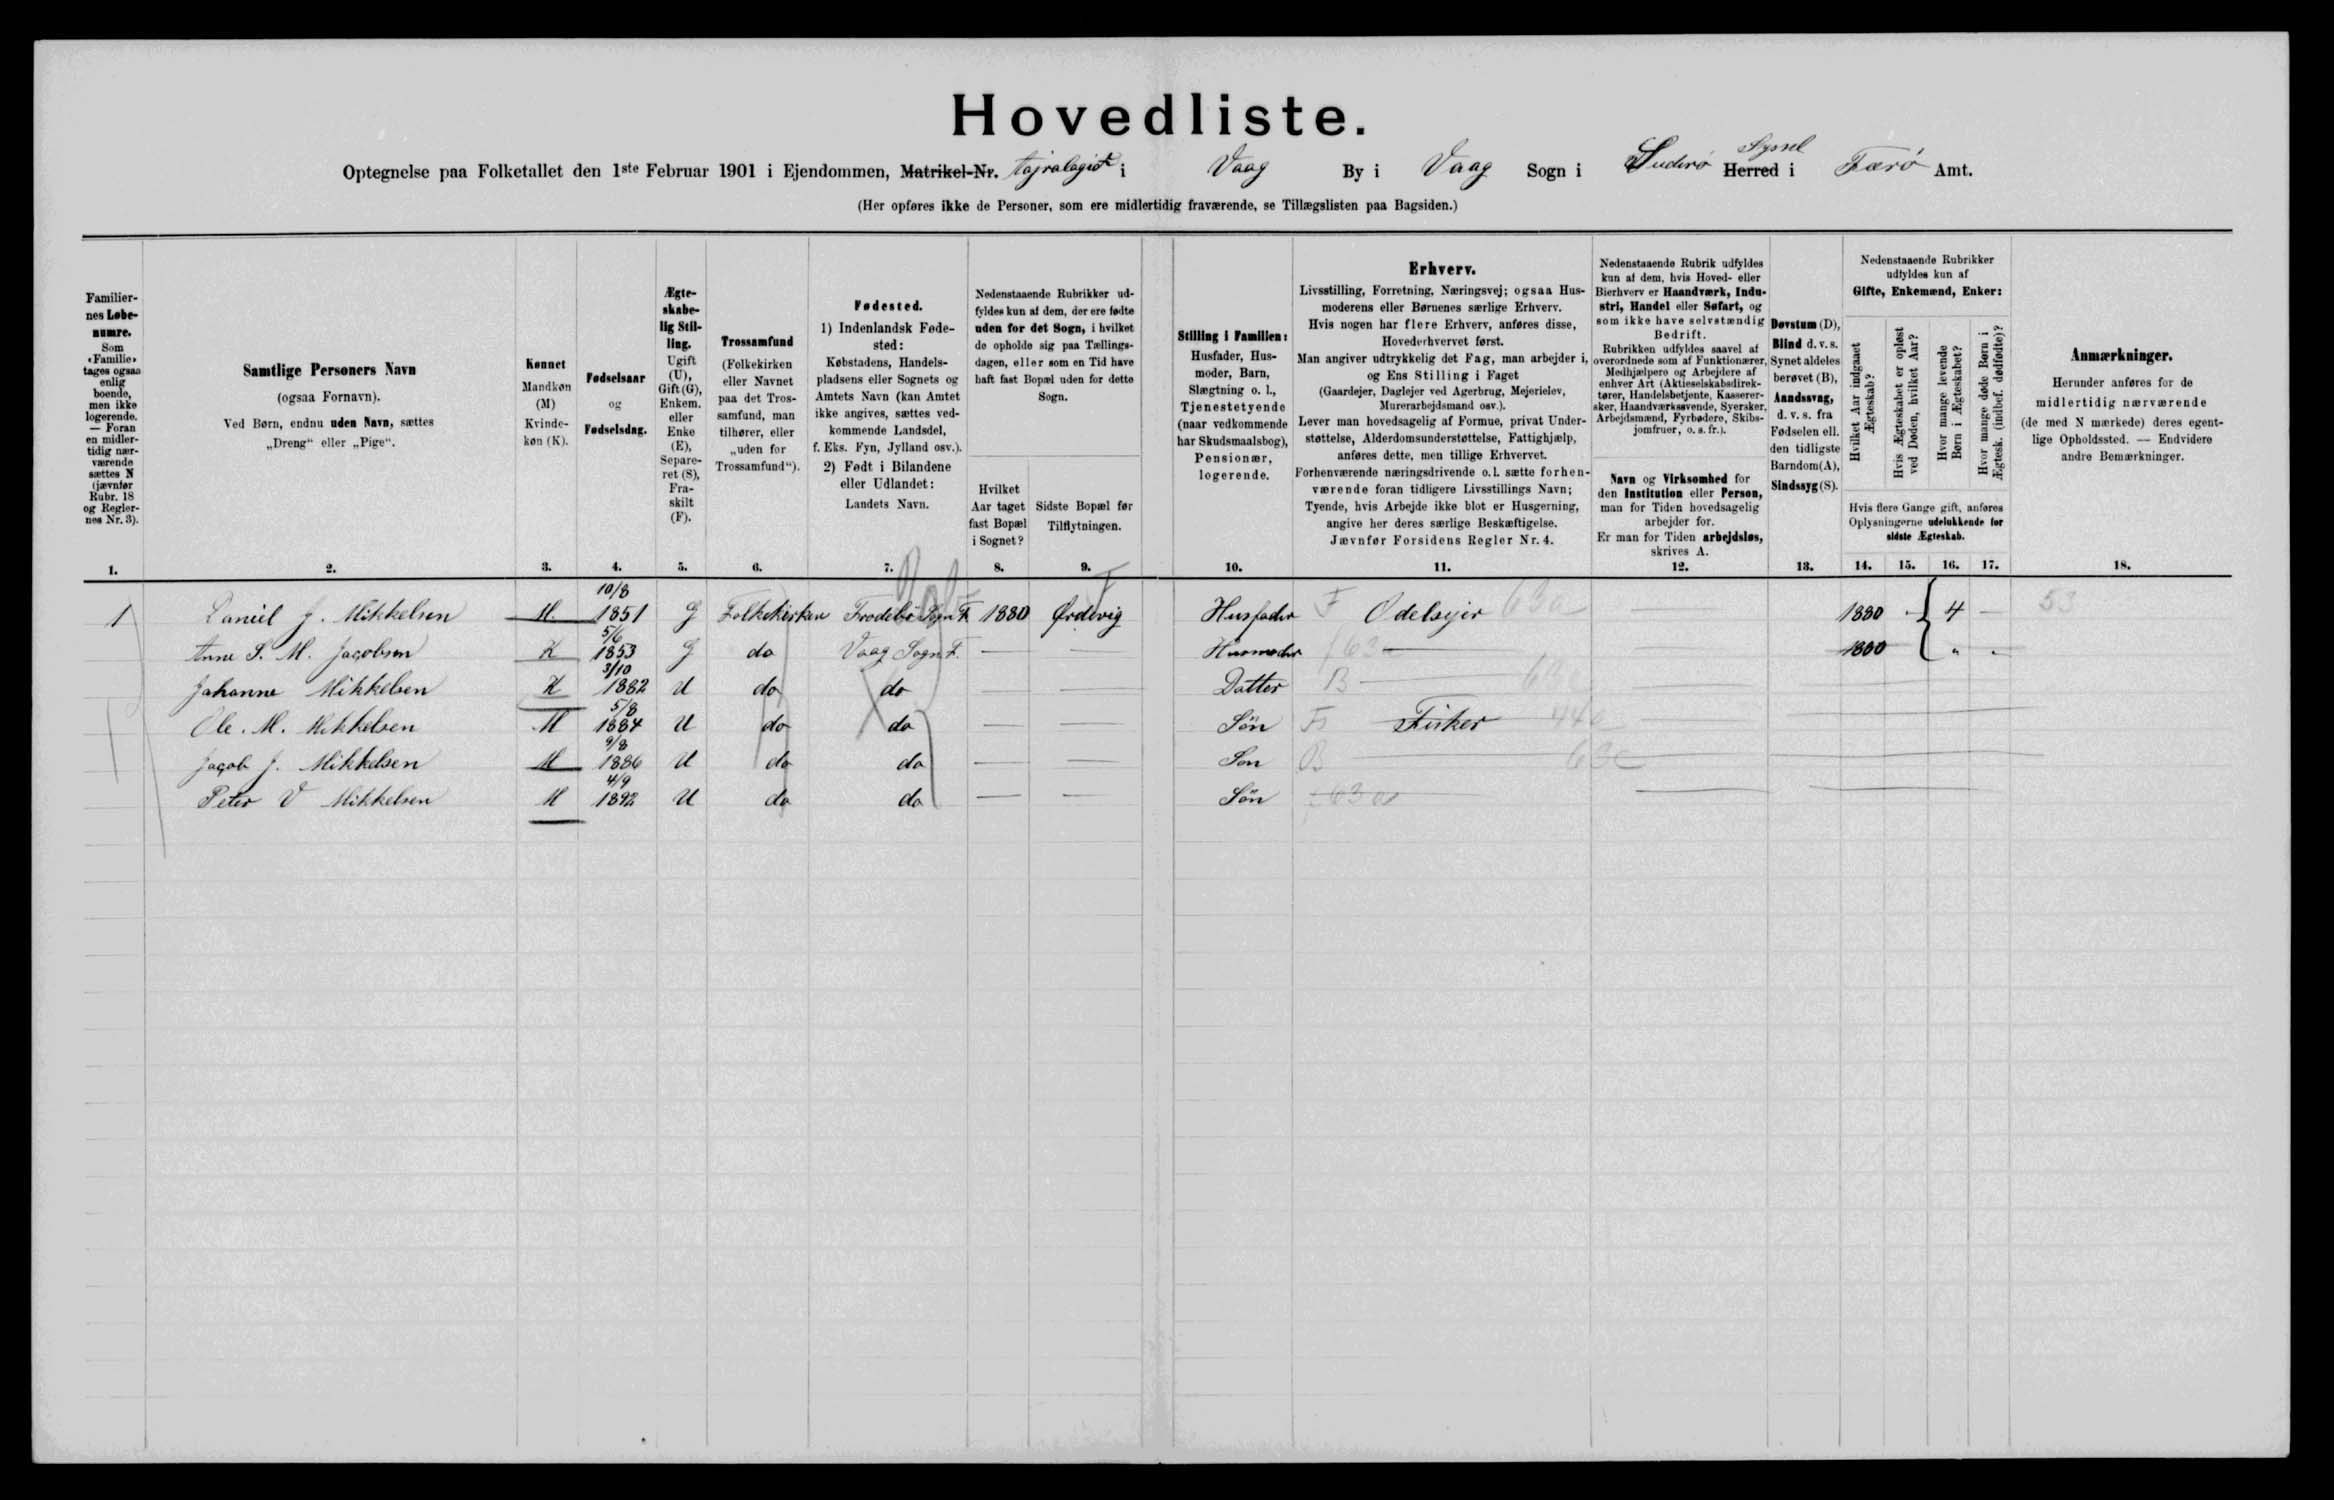 Hovedliste.
Optegnelse paa Folketallet den 1ste Februar 1901 i Ejendommen, Matrikel-Nr. i Vaag By i Vaag Sogn i Suderø Syssel Herred i Færø Amt.
(Her opføres ikke de Personer, som ere midlertidig fraværende, se Tillægslisten paa Bagsiden.)
Familiernes Løbenumre.
Som «Familie» tages ogsaa enlig boende, men ikke logerende. — Foran en midlertidig nærværende sættes N (jævnfør Rubr. 18 og Reglernes Nr. 3).
Samtlige Personers Navn
(ogsaa Fornavn).
Ved Børn, endnu uden Navn, sættes
„Dreng“ eller „Pige“.
Kønnet
Mandkøn (M)
Kvindekøn (K).
Fødselsaar
og
Fødselsdag.
Ægteskabelig Stilling.
Ugift (U), Gift (G), Enkem. eller Enke (E), Separeret (S), Fraskilt (F).
Trossamfund
(Folkekirken eller Navnet paa det Trossamfund, man tilhører, eller „uden for Trossamfund“).
Fødested.
1) Indenlandsk Fødested:
Købstadens, Handelspladsens eller Sognets og Amtets Navn (kan Amtet ikke angives, sættes vedkommende Landsdel, f. Eks. Fyn, Jylland osv.).
2) Født i Bilandene eller Udlandet:
Landets Navn.
Nedenstaaende Rubrikker udfyldes kun af dem, der ere fødte uden for det Sogn, i hvilket de opholde sig paa Tællingsdagen, eller som en Tid have haft fast Bopæl uden for dette Sogn.
Hvilket Aar taget fast Bopæl i Sognet?
Sidste Bopæl før Tilflytningen.
Stilling i Familien:
Husfader, Husmoder, Barn, Slægtning o. l., Tjenestetyende (naar vedkommende har Skudsmaalsbog), Pensionær, logerende.
Erhverv.
Livsstilling, Forretning, Næringsvej; ogsaa Husmoderens eller Børnenes særlige Erhverv.
Hvis nogen har flere Erhverv, anføres disse, Hovederhvervet først.
Man angiver udtrykkelig det Fag, man arbejder i, og Ens Stilling i Faget
(Gaardejer, Daglejer ved Agerbrug, Mejerielev, Murerarbejdsmand osv.).
Lever man hovedsagelig af Formue, privat Understøttelse, Alderdomsunderstøttelse, Fattighjælp, anføres dette, men tillige Erhvervet.
Forhenværende næringsdrivende o. l. sætte forhenværende foran tidligere Livsstillings Navn;
Tyende, hvis Arbejde ikke blot er Husgerning, angive her deres særlige Beskæftigelse.
Jævnfør Forsidens Regler Nr. 4.
Nedenstaaende Rubrik udfyldes kun af dem, hvis Hoved- eller Bierhverv er Haandværk, Industri, Handel eller Søfart, og som ikke have selvstændig Bedrift.
Rubrikken udfyldes saavel af overordnede som af Funktionærer, Medhjælpere og Arbejdere af enhver Art (Aktieselskabsdirektører, Handelsbetjente, Kasserersker, Haandværkssvende, Syersker, Arbejdsmænd, Fyrbødere, Skibsjomfruer, o. s. fr.).
Navn og Virksomhed for den Institution eller Person, man for Tiden hovedsagelig arbejder for.
Er man for Tiden arbejdsløs, skrives A.
Døvstum (D), Blind d. v. s. Synet aldeles berøvet (B), Aandssvag, d. v. s. fra Fødselen ell. den tidligste Barndom (A), Sindssyg (S).
Nedenstaaende Rubrikker udfyldes kun af
Gifte, Enkemænd, Enker:
Hvilket Aar indgaaet Ægteskab?
Hvis Ægteskabet er opløst ved Døden, hvilket Aar?
Hvor mange levende Børn i Ægteskabet?
Hvor mange døde Børn i Ægtesk. (indbef. dødfødte)?
Hvis flere Gange gift, anføres Oplysningerne udelukkende for sidste Ægteskab.
Anmærkninger.
Herunder anføres for de midlertidig nærværende (de med N mærkede) deres egentlige Opholdssted. — Endvidere andre Bemærkninger.
1. 2. 3. 4. 5. 6. 7. 8. 9. 10. 11. 12. 13. 14. 15. 16. 17. 18.
1 Daniel J. Mikkelsen M. 10/8 1851 G Folkekirken Frodebø Sogn F. 1880 Ørdevig Husfader F Odelsejer 63a 1880 - 4 — 53
Anne S. M. Jacobsen K 5/6 1853 G do Vaag Sogn F. — — Husmoder f 63a — 1880 " -
Johanne Mikkelsen K 3/10 1882 U do do — Datter B — 63c
Ole. M. Mikkelsen M 5/8 1884 U do do — — Søn Fisker 44c
Jacob J. Mikkelsen M 9/8 1886 U do do — — Søn B — 63c
Peter V Mikkelsen M 4/9 1892 U do do — — Søn f 63a —